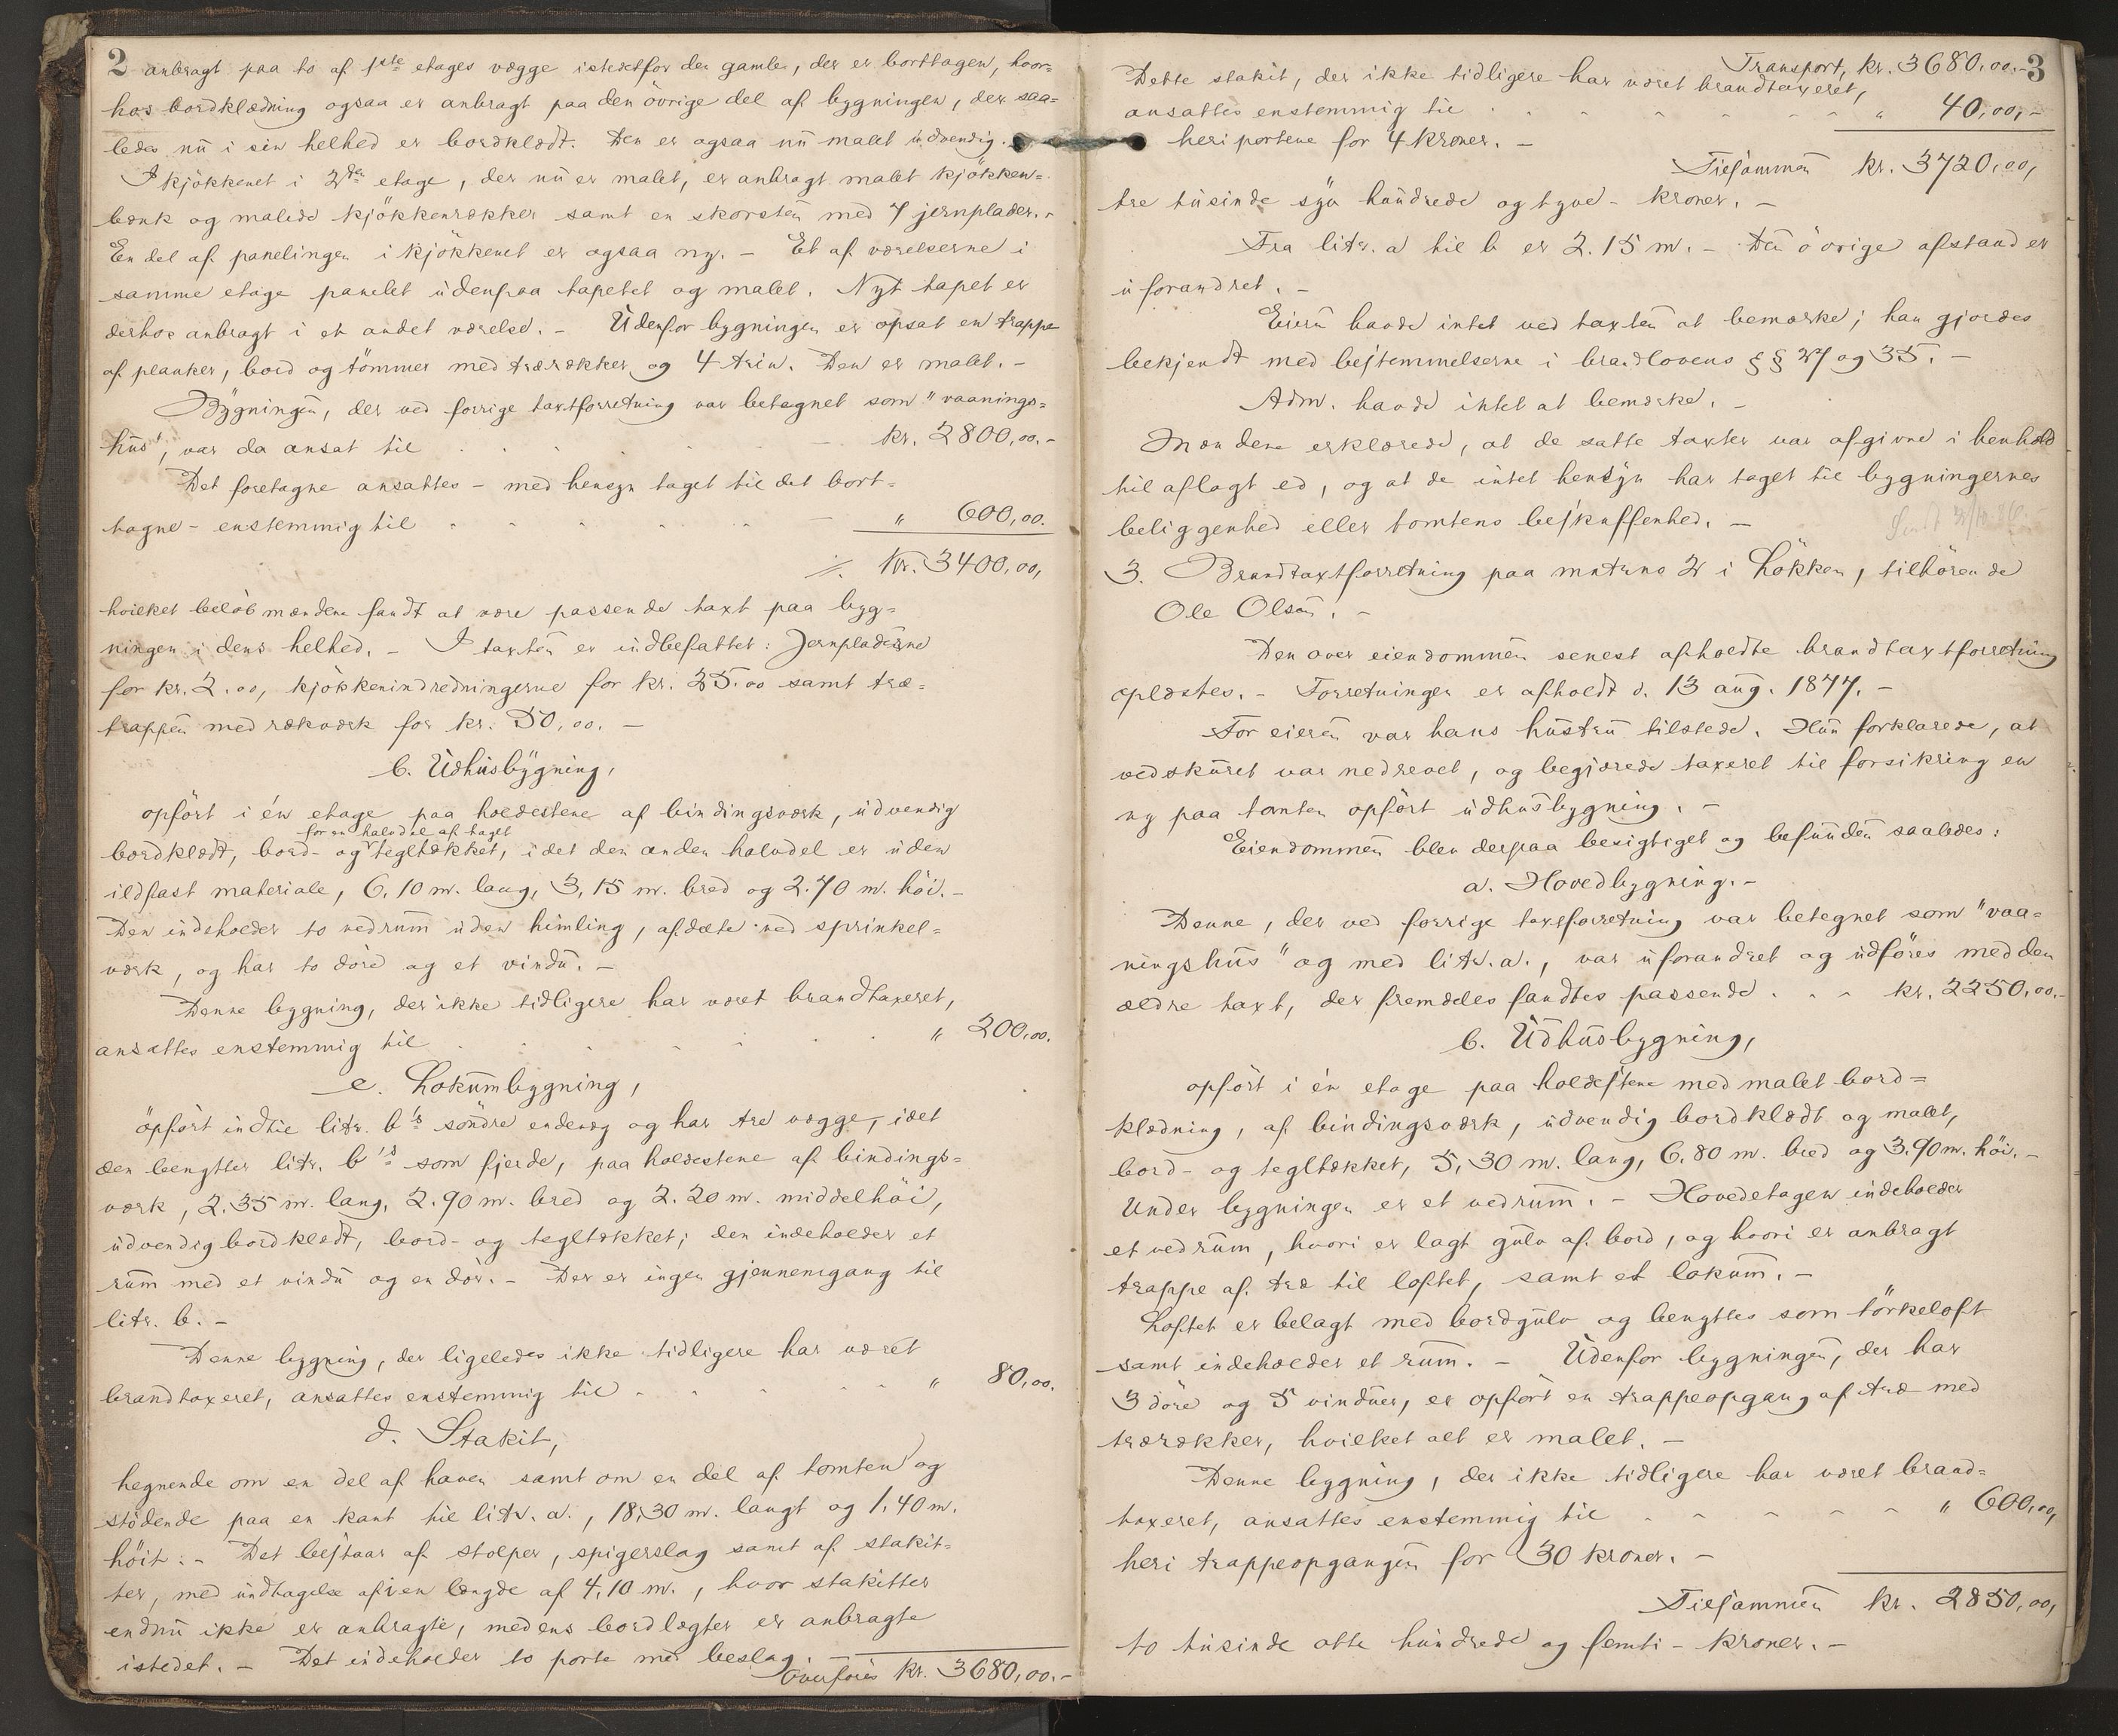 2 anbragt paa to af 1ste etages vægge istedetfor den gamle, der er borttagen, hvor=
hos bordklædning ogsaa er anbragt paa den övrige del af bygningen, der saa=
ledes nu i sin helhed er bordklædt. Den er ogsaa nu malet udvendig.
I kjökkenet i 2den etage, der nu er malet, er anbragt malet kjökken=
bænk og malede kjökkenrækker samt en skorsten med 7 jernplader. -
En del af panelingen i kjökkenet er ogsaa ny. - Et af værelserne i
samme etage panelet udenpaa tapetet og malet. Nyt tapet er
derhos anbragt i et andet værelse. - Udenfor bygningen er opsat en trappe
af planker, bord og tömmer med trærækker og 4 trin. Den er malet. -
Bygningen, der ved forrige taxtforretning var betegnet som "vaanings=
hus", var da ansat til kr. 2800,00.-
Det foretagne ansattes - med hensyn taget til det bort=
tagne - enstemmig til " 600,00.
Kr. 3400,00,
hvilket belöb mændene fandt at være passende taxt paa byg=
ningen i dens helhed. - I taxten er indbefattet: Jernpladerne
for kr. 2.00, kjökkenindredningerne for kr. 35.00 samt træ=
trappen med rækværk for kr. 50,00. -
b. Udhusbygning,
opfört i én etage paa holdestene af bindingsværk, udvendig
for en halvdel af taget
bordklædt, bord- og tegltækket, idet den anden halvdel er uden
ildfast materiale, 6,10 m. lang, 3,15 m. bred og 2.70 m. höi. -
Den indeholder to vedrum uden himling, afdelte ved sprinkel=
værk, og har to döre og et vindu. -
Denne bygning, der ikke tidligere har været brandtaxeret,
ansattes enstemmig til " 200,00.
c. Lokumbygning,
opfört indtil litr. b's söndre endevæg og har tre vægge, idet
den benytter litr. b's som fjerde, paa holdestene af bindings=
værk, 2.35 m. lang, 2.90 m. bred og 2.20 m. middelhöi,
udvendig bordklædt, bord- og tegltækket; den indeholder et
rum med et vindu og en dör. - Der er ingen gjennemgang til
litr. b. -
Denne bygning, der ligeledes ikke tidligere har været
brandtaxeret, ansattes enstemmig til " 80,00.
d. Stakit,
hegnende om en del af haven samt om en del af tomten og
stödende paa en kant til litr. a., 18,30 m. langt og 1.40 m.
höit. - Det bestaar af stolper, spigerslag samt af stakit=
ter, med undtagelse af i en længde af 4,10 m., hvor stakitter
endnu ikke er anbragte, medens bordlægter er anbragte
istedet. - Det indeholder to porte med beslag.
Overföres kr. 3680,00.-
Transport, kr. 3680.00.- 3
Dette stakit, der ikke tidligere har været brandtaxeret,
ansattes enstemmig til " 40,00,-
heri portene for 4 kroner. -
Tilsammen kr. 3720,00,
tre tusinde syv hundrede og tyve - kroner. -
Fra litr. a til b er 2.15 m. - De övrige afstand er
uforandret. -
Eieren havde intet ved taxten at bemærke; han gjordes
bekjendt med bestemmelserne i brandlovens §§ 27 og 35. -
Adm. havde intet at bemærke. -
Mændene erklærede, at de satte taxter var afgivne i henhold
til aflagt ed, og at de intet hensyn har taget til bygningernes
beliggenhed eller tomtens beskaffenhed. -
3. Brandtaxtforretning paa mntrno 2 i Lökken, tilhörende
Ole Olsen. -
Den over eiendommen senest afholdte brandtaxtforretning
oplæstes. - Forretningen er afholdt d. 13 aug. 1877. -
For eieren var hans hustru tilstede. Hun forklarede, at
vedskuret var nedrevet, og begjærede taxeret til forsikring en
ny paa tomten opfört udhusbygning. -
Eiendommen blev derpaa besigtiget og befunden saaledes:
a. Hovedbygning. -
Denne, der ved forrige taxtforretning var betegnet som "vaa=
ningshus" og med litr. a., var uforandret og udföres med den
ældre taxt, der fremdeles fandtes passende kr. 2250,00.-
b. Udhusbygning,
opfört i én etage paa holdestene med malet bord=
klædning, af bindingsværk, udvendig bordklædt og malet,
bord- og tegltækket, 5,30 m. lang, 6.80 m. bred og 3.90 m. höi. -
Under bygningen er et vedrum. - Hovedetagen indeholder
et vedrum, hvori er lagt gulv af bord, og hvori er anbragt
trappe af træ til loftet, samt et lokum. -
Loftet er belagt med bordgulv og benyttes som törkeloft
samt indeholder et rum. - Udenfor bygningen, der har
3 döre og 5 vinduer, er opfört en trappeopgang af træ med
trærækker, hvilket alt er malet. -
Denne bygning, der ikke tidligere har været brand=
taxeret, ansattes enstemmig til " 600,00,
heri trappeopgangen for 30 kroner. -
Tilsammen kr. 2850,00,
to tusinde otte hundrede og femti - kroner. -